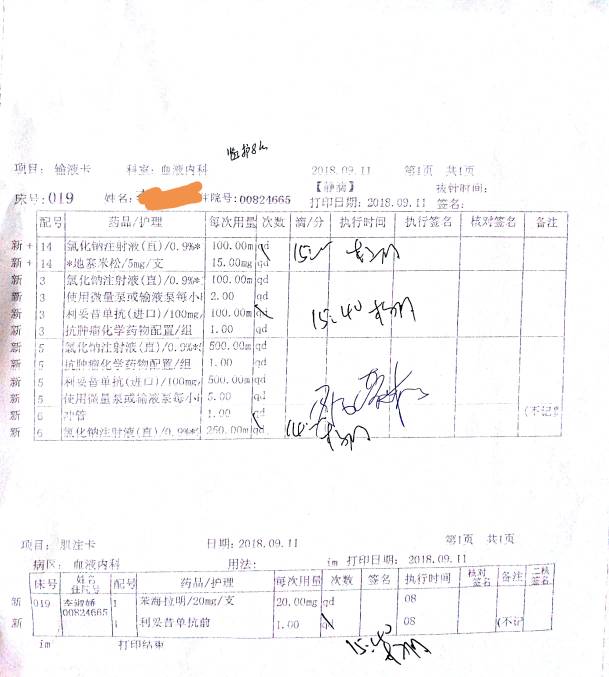 监护8h
项目: 输液卡 科室: 血液内科 2018.09.11 第1页 共1页
【静滴】 拔针时间:
床号: 019 姓名: 住院号: 00824665 打印日期: 2018.09.11 签名:
配号 药品/护理 每次用量 次数 滴/分 执行时间 执行签名 核对签名 备注
新 + 14 氯化钠注射液(直)/0.9%* 100.00m qd
新 + 14 *地塞米松/5mg/支 15.00mg qd
新 3 氯化钠注射液(直)/0.9%* 100.00m qd
新 3 使用微量泵或输液泵每小 2.00 qd
新 3 利妥昔单抗(进口)/100mg/ 100.00m qd
15:40
新 3 抗肿瘤化学药物配置/组 1.00 qd
新 5 氯化钠注射液(直)/0.9%* 500.00m qd
新 5 抗肿瘤化学药物配置/组 1.00 qd
新 5 利妥昔单抗(进口)/100mg/ 500.00m qd
新 5 使用微量泵或输液泵每小 5.00 qd
新 6 冲管 1.00 qd (不记
新 6 氯化钠注射液(直)/0.9%* 250.00m qd
项目: 肌注卡 日期: 2018.09.11 第1页 共1页
病区: 血液内科 用法: im 打印日期: 2018.09.11
床号 姓名 住院号 配号 药品/护理 每次用量 次数 签名 执行时间 核对签名 备注 二核签名
新 019 00824665 1 苯海拉明/20mg/支 20.00mg qd 08
新 1 利妥昔单抗前 1.00 qd 08 (不记
15:40
im 打印结束